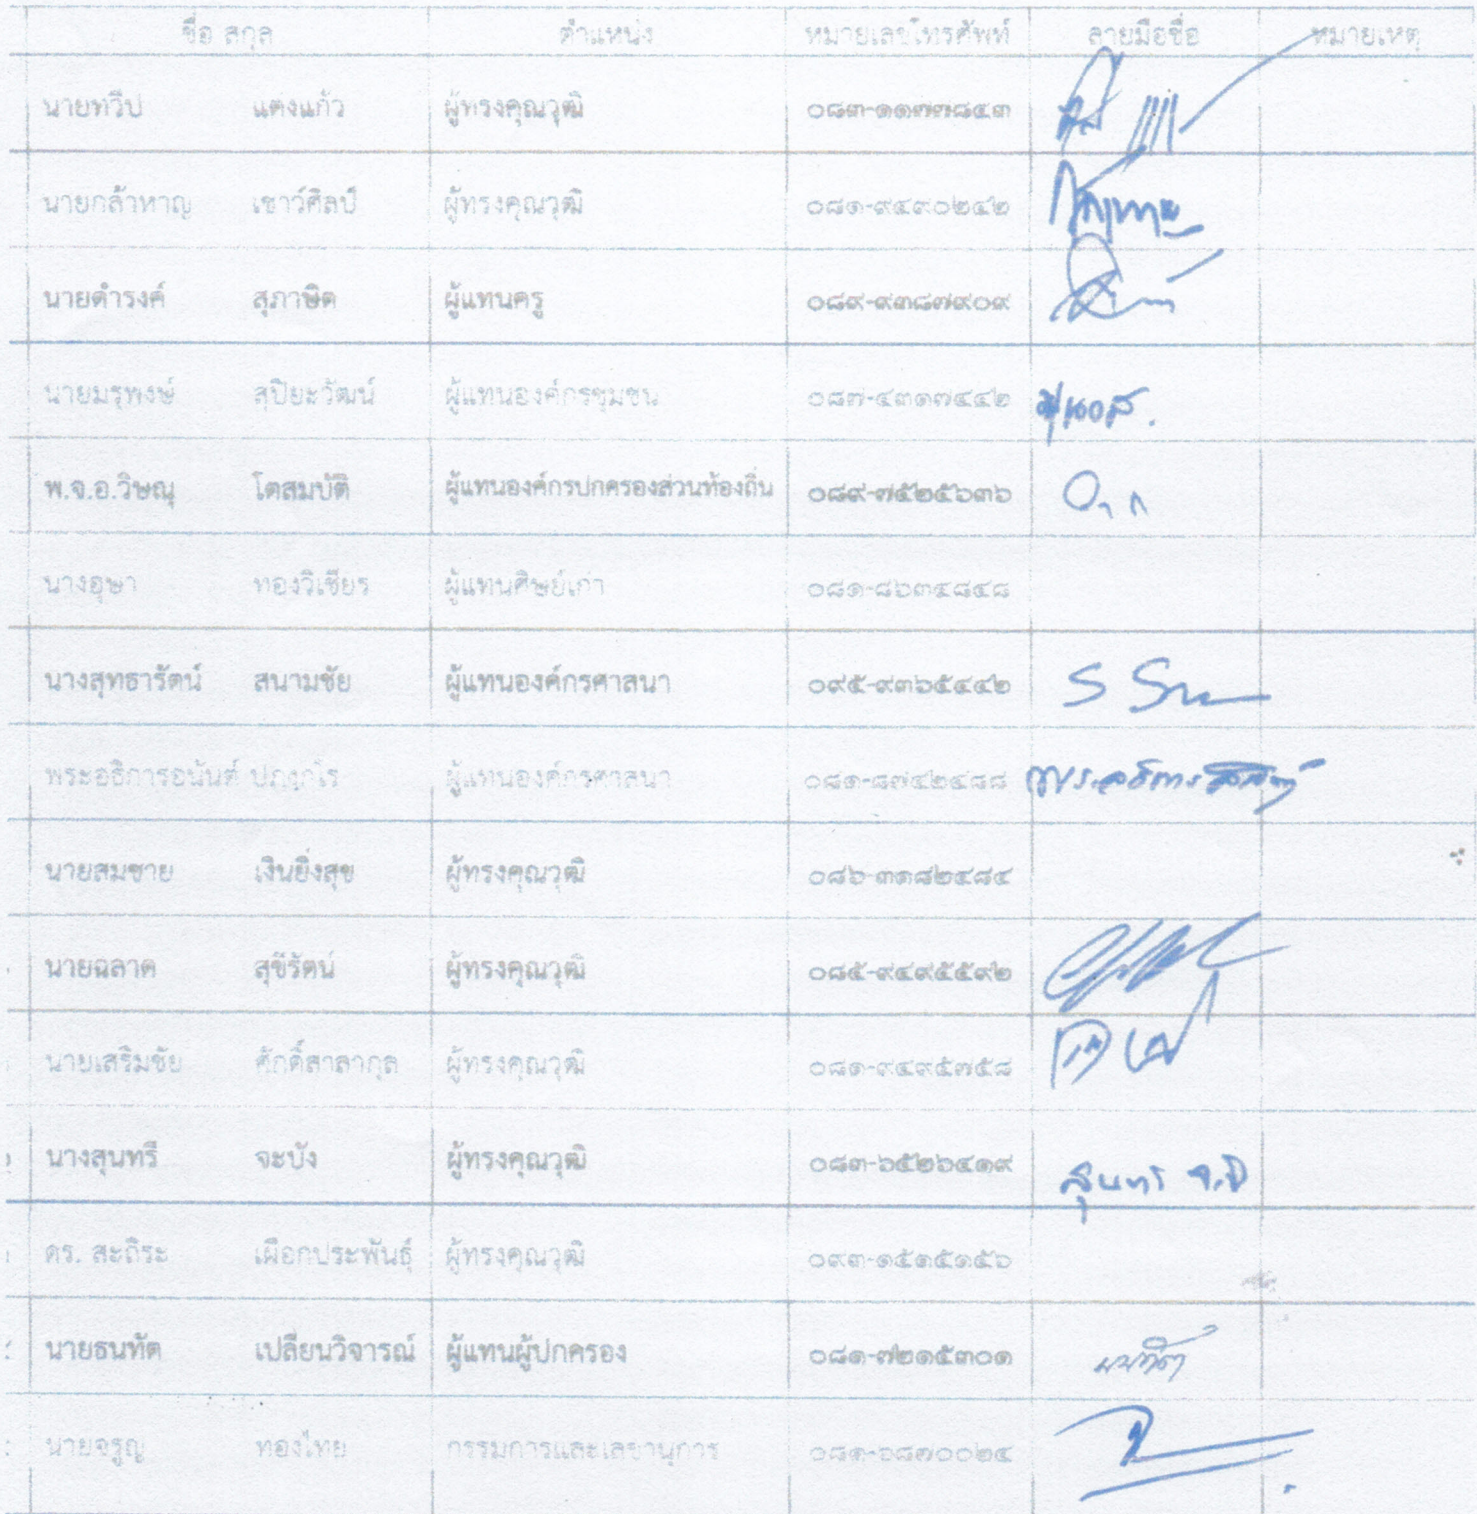 ชื่อ สกุล ตำแหน่ง หมายเลขโทรศัพท์ ลายมือชื่อ หมายเหตุ
นายทวีป แตงแก้ว ผู้ทรงคุณวุฒิ ๐๘๓-๑๑๗๗๘๔๓
นายกล้าหาญ เชาว์ศิลป์ ผู้ทรงคุณวุฒิ ๐๘๑-๙๔๙๐๒๔๒
นายดำรงค์ สุภาษิต ผู้แทนครู ๐๘๙-๙๓๘๗๙๐๙
นายมรุพงษ์ สุปิยะวัฒน์ ผู้แทนองค์กรชุมชน ๐๘๗-๔๓๑๗๔๔๒
พ.จ.อ.วิษณุ โตสมบัติ ผู้แทนองค์กรปกครองส่วนท้องถิ่น ๐๘๙-๗๕๒๕๖๓๖
นางอุษา ทองวิเชียร ผู้แทนศิษย์เก่า ๐๘๑-๘๖๓๔๘๔๘
นางสุทธารัตน์ สนามชัย ผู้แทนองค์กรศาสนา ๐๙๕-๙๓๖๕๔๔๒
พระอธิการอนันต์ ผู้แทนองค์กรศาสนา ๐๘๑-๘๗๔๒๔๘๘
นายสมชาย เงินยิ่งสุข ผู้ทรงคุณวุฒิ ๐๘๖-๓๑๘๒๔๘๔
นายฉลาด สุขีรัตน์ ผู้ทรงคุณวุฒิ ๐๘๕-๙๔๙๕๕๙๒
นายเสริมชัย ศักดิ์สาลากุล ผู้ทรงคุณวุฒิ ๐๘๑-๙๔๙๕๗๕๘
นางสุนทรี จะบัง ผู้ทรงคุณวุฒิ ๐๘๓-๖๕๒๖๔๑๙
ดร. สะถิระ เผือกประพันธุ์ ผู้ทรงคุณวุฒิ ๐๙๓-๑๕๑๕๑๕๖
นายธนทัต เปลี่ยนวิจารณ์ ผู้แทนผู้ปกครอง ๐๘๑-๗๒๑๕๓๐๑
นายจรูญ ทองไทย กรรมการและเลขานุการ